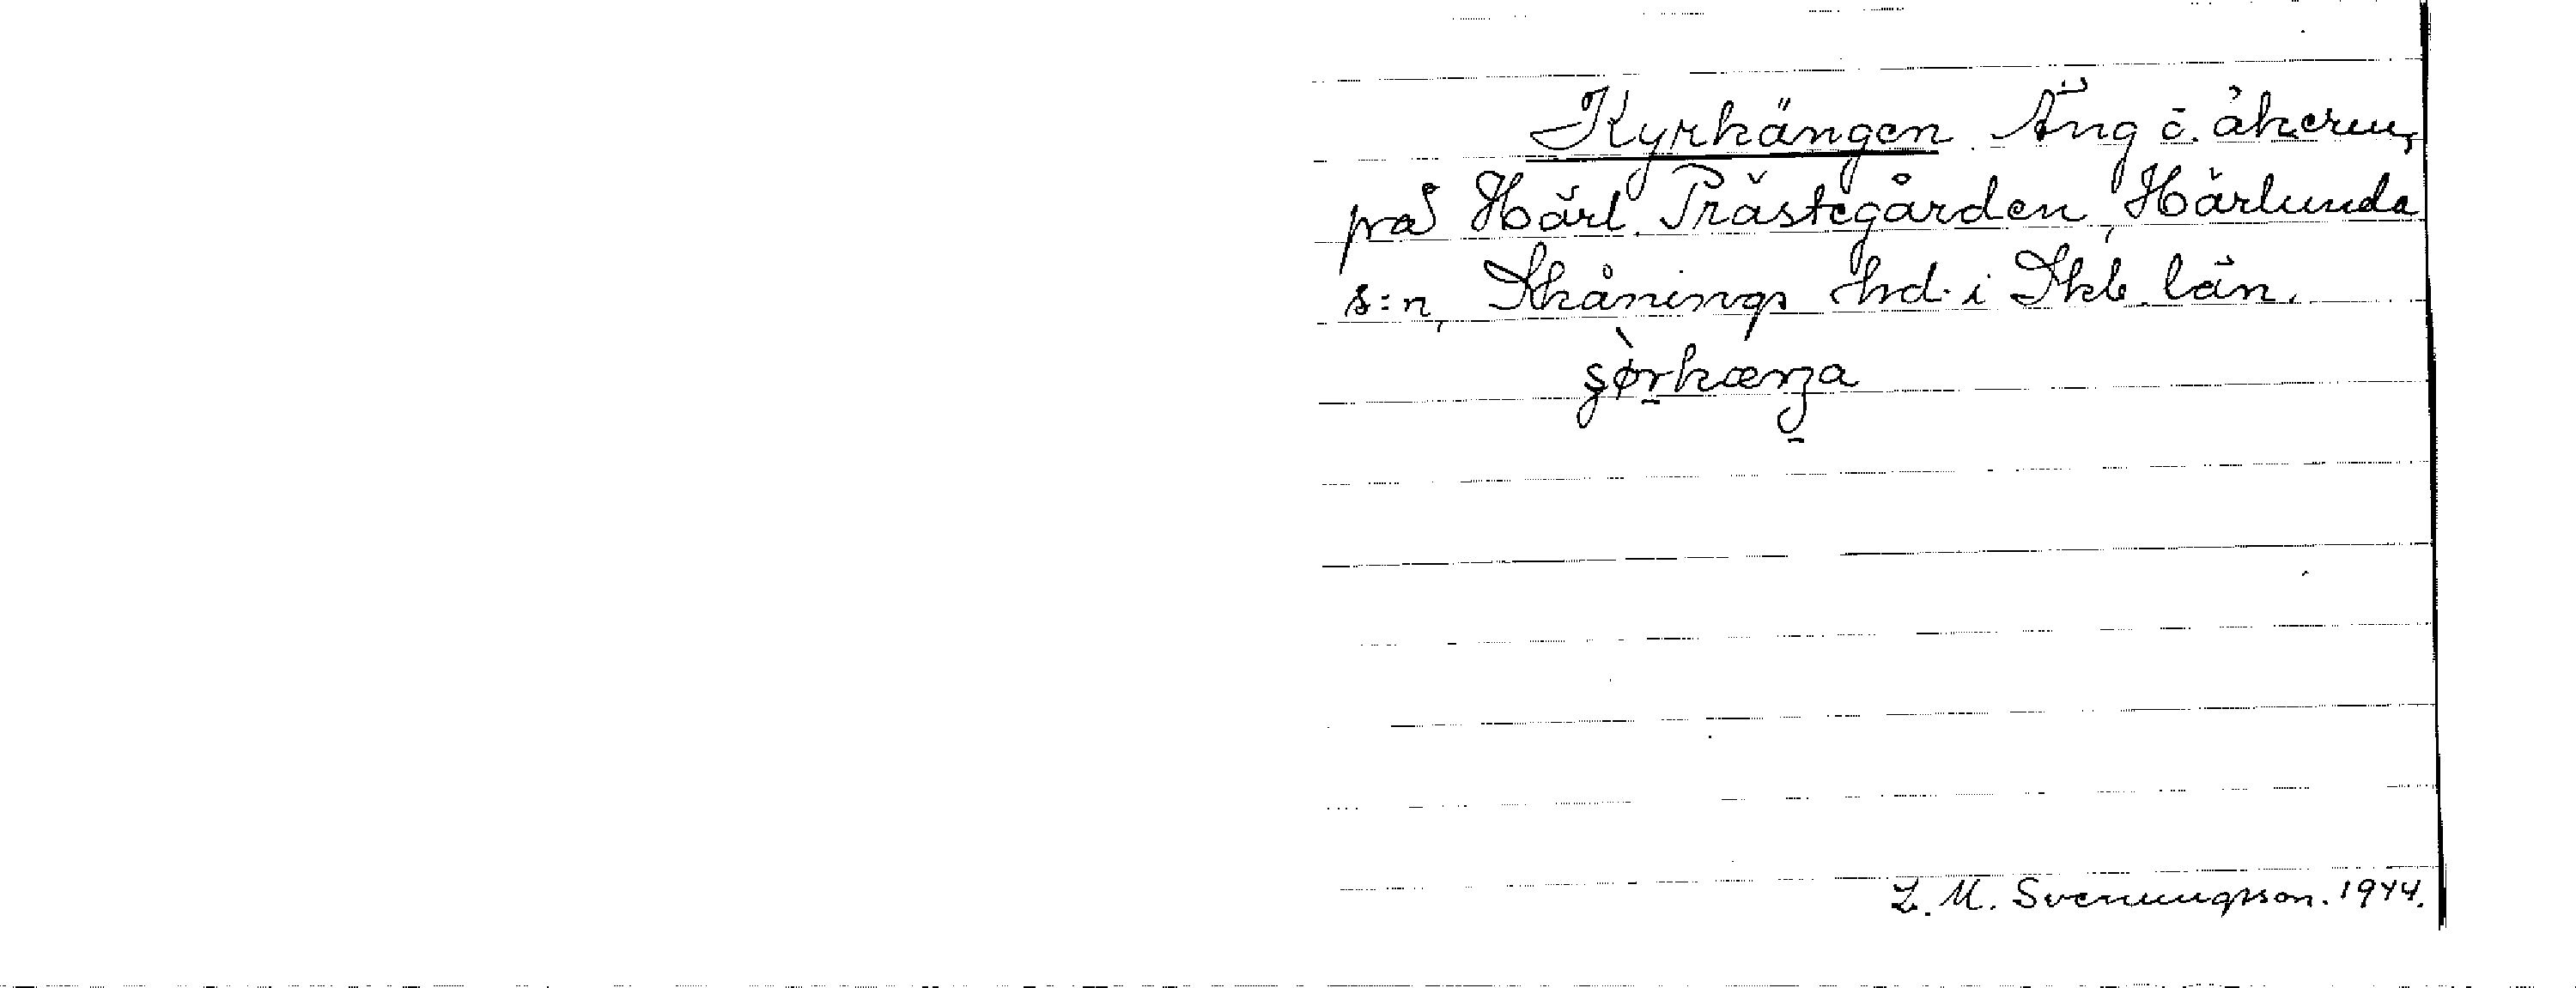 Kyrkängen. Äng o. åkerm,
på Härl. Prästegården, Härlunda
s:n, Skånings hd. i Skb. län.
L. M. Svenungsson. 1944.